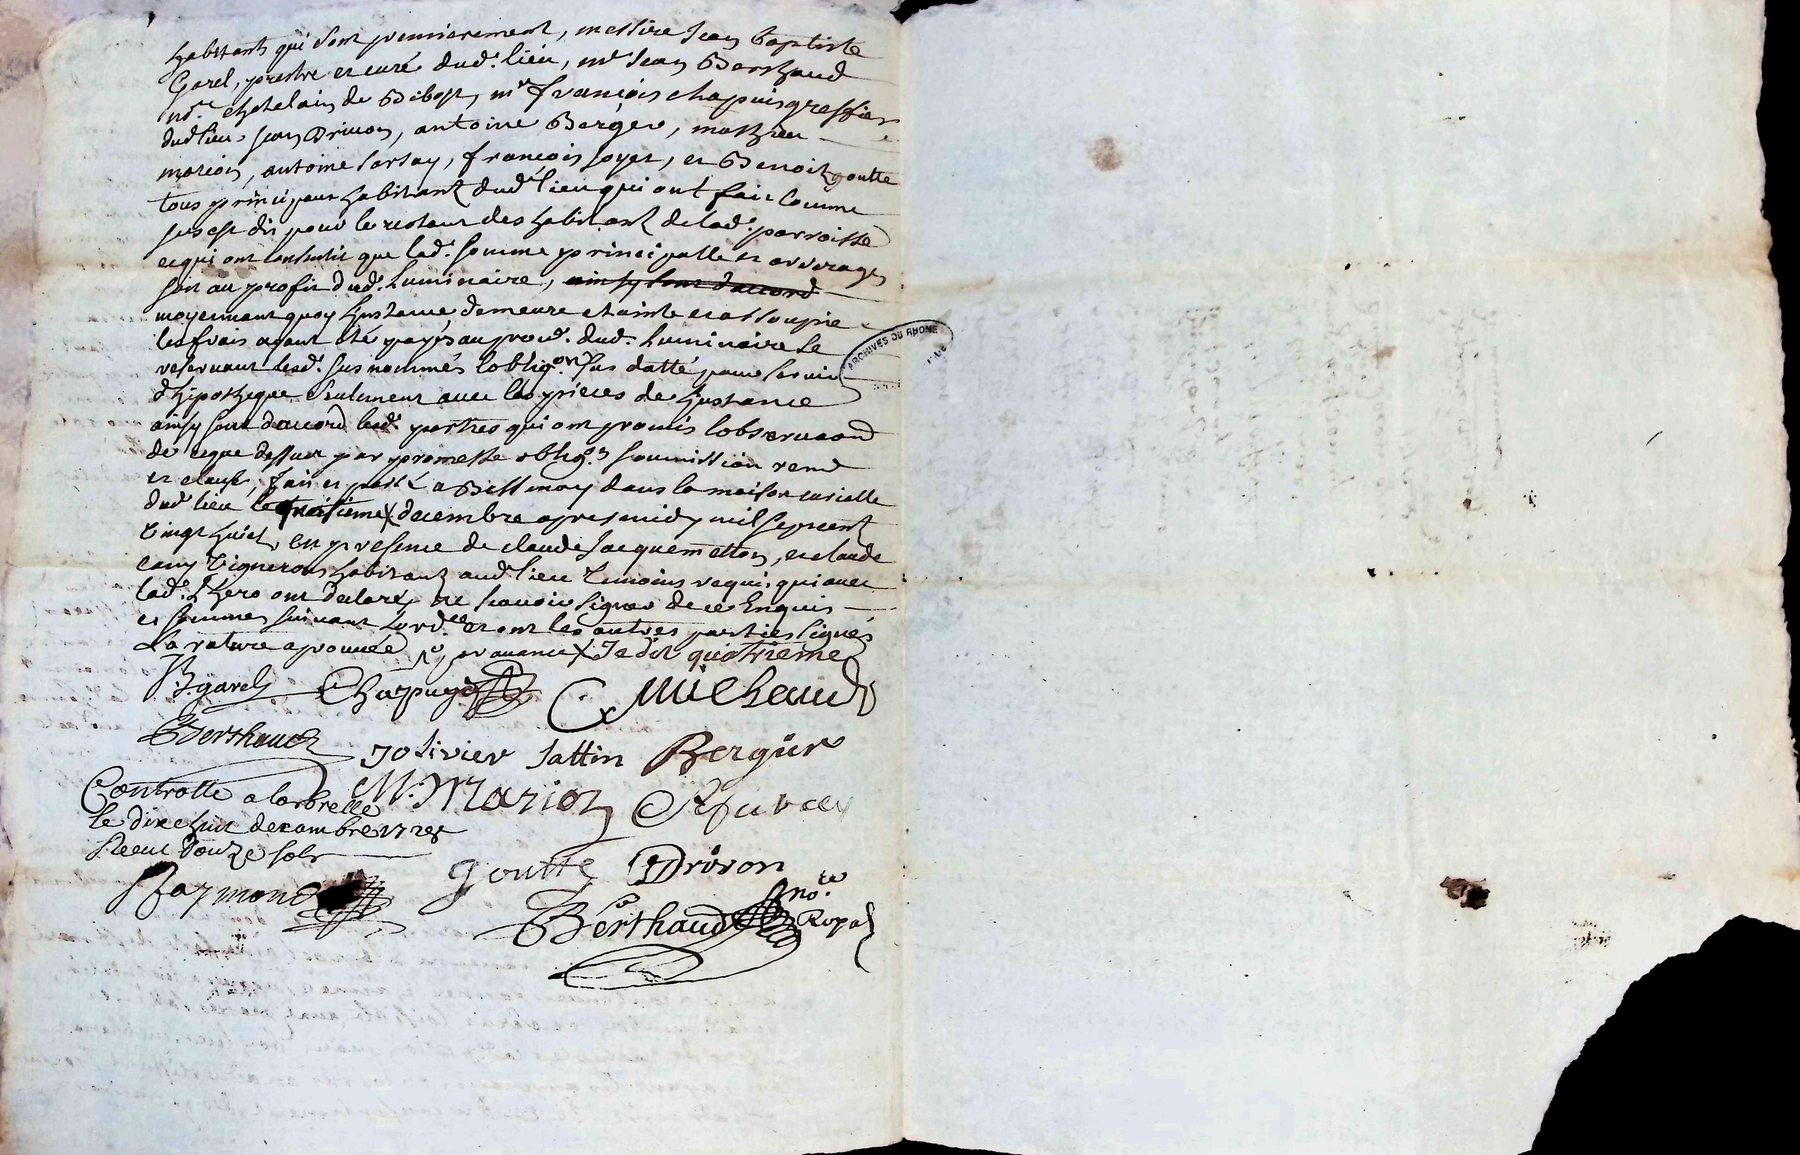 habitants qui sont premierement, messire Jean Baptiste
Garel, prestre et curé dud. lieu, me Jean Berthaud
nore. chatelain de Bibost, mr françois chapuis greffier
dud lieu Jean Drivon, antoine Berger, mathieu
marion, antoine sarsay, françois Joyet, et Benoit goutte
tous principaux habitant dud. lieu qui ont fait comme
sus est dit pour le restant des habitant de lad. parroisse
et qui ont consentit que lad. somme principalle et arrerages
soit au profit dud. Luminaire, ainsy sont daccord
moyennant quoy Linstance demeure etainte et assoupie
les frais ayant été payés au proud. dud. Luminaire se
reservant lesd. sus nommés lobligon. sus datté pour servir
d'hipotheque seulement avec les pieces de Linstance
ainsy sont daccord lesd. parties qui ont promis lobservaon
de ce que dessus par promesse oblig.on soumission renon
et clause, fait et passé a Bessenay dans la maison curialle
dud. lieu le troisieme X decembre apres midy mil sept cent
vingt huict, en presence de claude Jacquemetton, et claude
cany vignerons habitant aud. lieu temoins requis qui avec
lad. Thero ont declaré ne scavoir signer de ce Enquis
et sommes suivant Lord.ce et ont les autres parties signés
La rature aprouvée X Je dit quatrieme
B. garel Chapuys Michaud
Berthaud
Jolivier Sattin Bergier
M. Marion
Controllé a larbrelle
le dix huit decembre 1728
Receu douze sols
goutte Drivon
Raymond
Berthaud nore. Royal
ARCHIVES DU RHONE